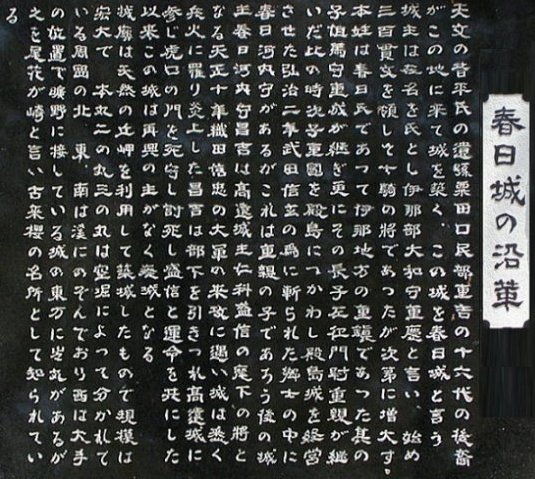 春日城の沿革
天文の昔平氏の遺孫粟田口民部重吉の十六代の後裔
がこの地に来て城を築く この城を春日城と言う
城主は在名を氏とし伊那部大和守重慶と言い 始め
三百貫文を領し七十騎の将であったが次第に増大す。
本姓は春日氏であって伊那地方の重鎮であった其の
子但馬守重成が継ぎ更にその長子左衛門尉重親が継
いだ此の時次子重国を殿島につかわし殿島城を経営
させた弘治二年武田信玄の為に斬られた郷士の中に
春日河内守があるがこれは重親の子であろう後の城
主春日河内守昌吉は高遠城主仁科盛信の麾下の将と
なる天正十年織田信忠の大軍の来攻に遇い城は悉く
兵火に罹り炎上した昌吉は部下を引きつれ高遠城に
参じ虎口の門を死守し討死し盛信と運命を共にした
以来この城は再興の主がなく廃城となる
城廓は天然の辻岬を利用して築城したもので規模は
宏大で 本丸二の丸三の丸は空堀によって分かれて
いる周囲の北 東 南は渓にのぞんでおり西は大手
の位置で曠野に接している城の東方に出丸があるが
之を尾花が崎と言い古来桜の名所として知られてい
る